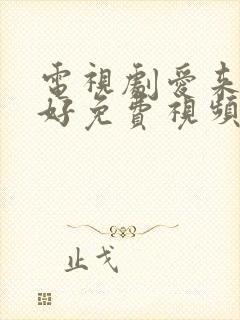 電視劇愛來
好免費視頻
止戈